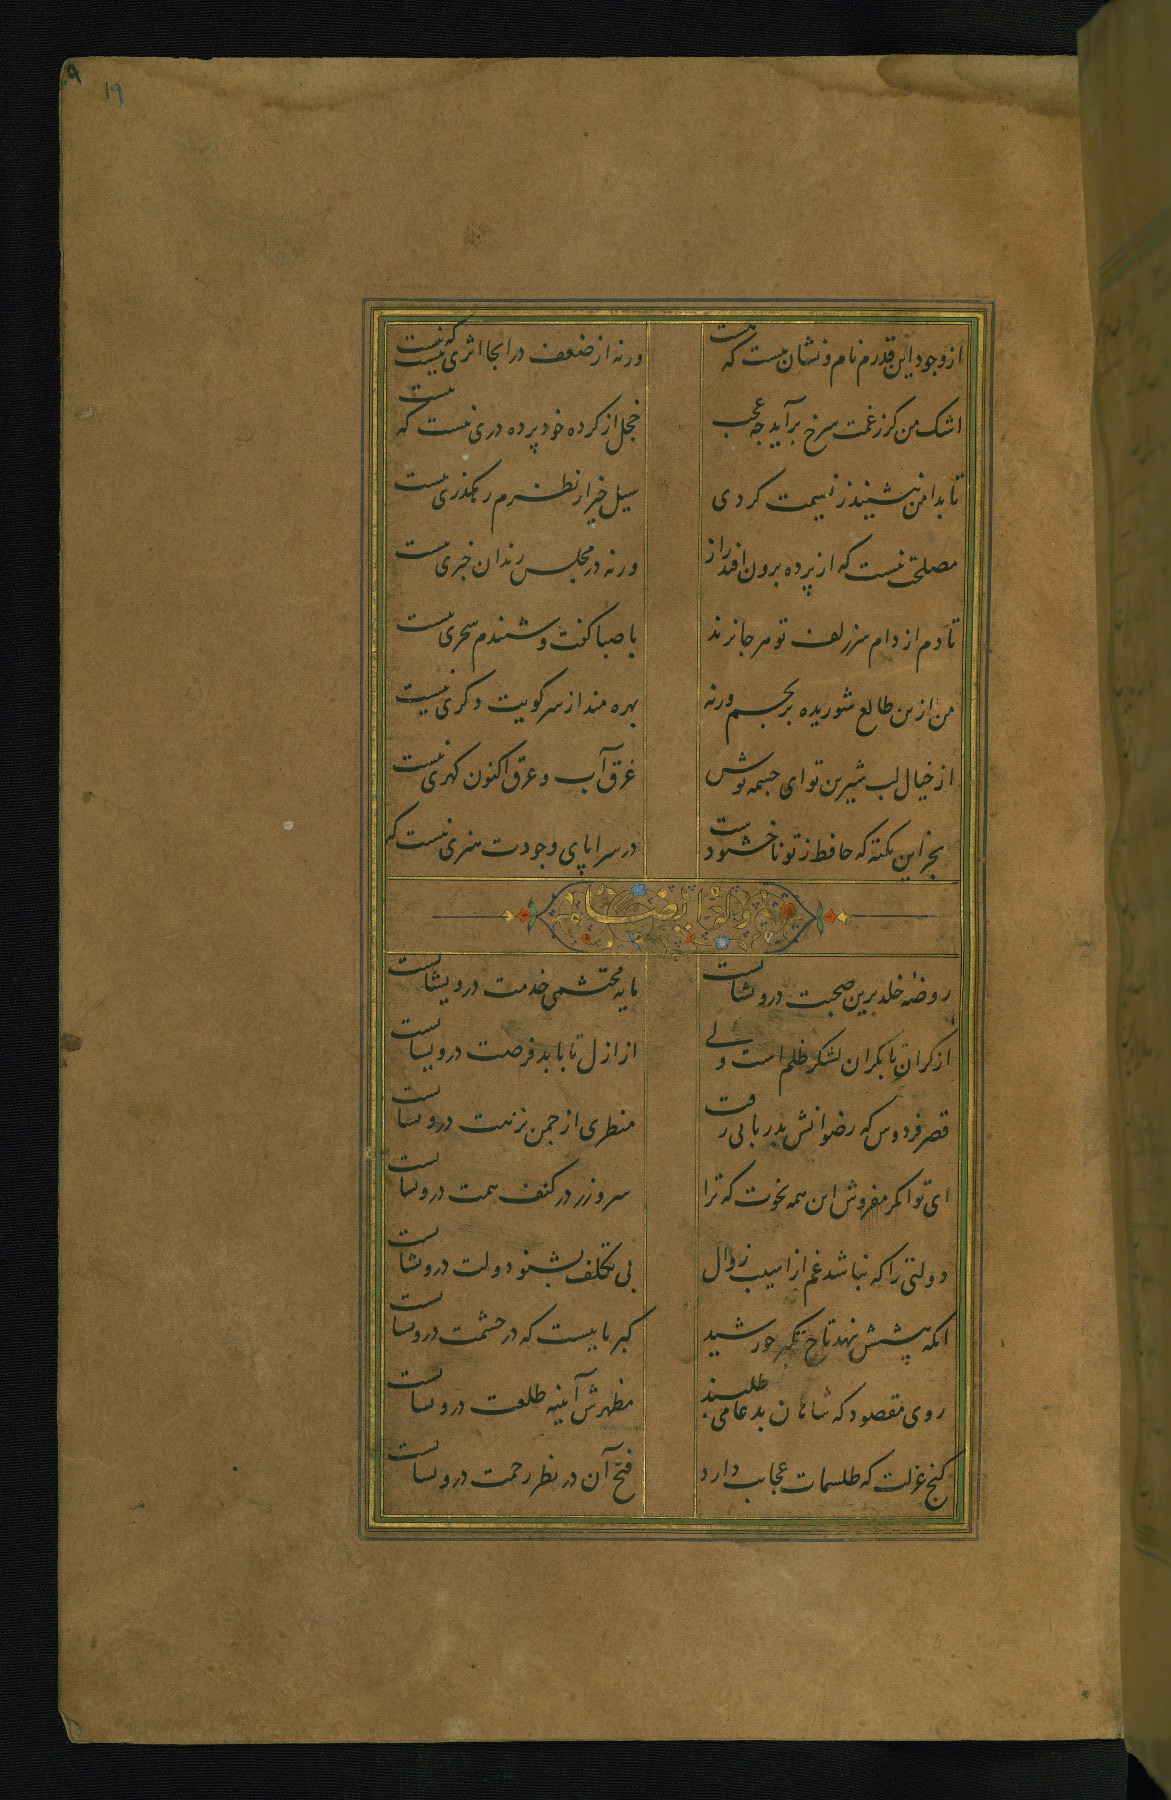 ۱۹
از وجود این قدرم نام و نشان هست که هست
ورنه از ضعف در انجا اثری نیست که نیست
اشک من کر ز غمت سرخ برآید چه عجب
خجل از کرده خود پرده دری نیست که نیست
تا بدامن ننشیند ز نسیمت کردی
سیل خیز از نظرم رهکذری نیست
مصلحت نیست که از پرده برون افتد راز
ورنه در مجلس رندان خبری نیست
تا دم از دام سر زلف تو هر جا نزند
با صبا کفت و شنیدم سحری نیست
من ازین طالع شوریده برنجم ورنه
بهره مند از سر کویت دکری نیست
از خیال لب شیرین تو ای چشمه نوش
غرق آب و عرق اکنون کهری نیست
بجز این نکته که حافظ ز تو ناخشنودست
در سراپای وجودت هنری نیست که
وله ایضا
روضهٔ خلد برین صحبت درویشانست
مایه محتشمی خدمت درویشانست
از کران تا بکران لشکر ظلم است ولی
از ازل تا بابد فرصت درویشانست
قصر فردوس که رضوانش بدربانی رفت
منظری از چمن نزهت درویشانست
ای توانکر مفروش این همه نخوت که ترا
سر و زر در کنف همت درویشانست
دولتی را که نباشد غم از اسیب زوال
بی تکلف بشنو دولت درویشانست
انکه پیشش بنهد تاج تکبر خورشید
کبریاییست که در حشمت درویشانست
روی مقصود که شاهان بدعا می طلبند
مظهرش آینه طلعت درویشانست
کنج عزلت که طلسمات عجایب دارد
فتح آن در نظر رحمت درویشانست